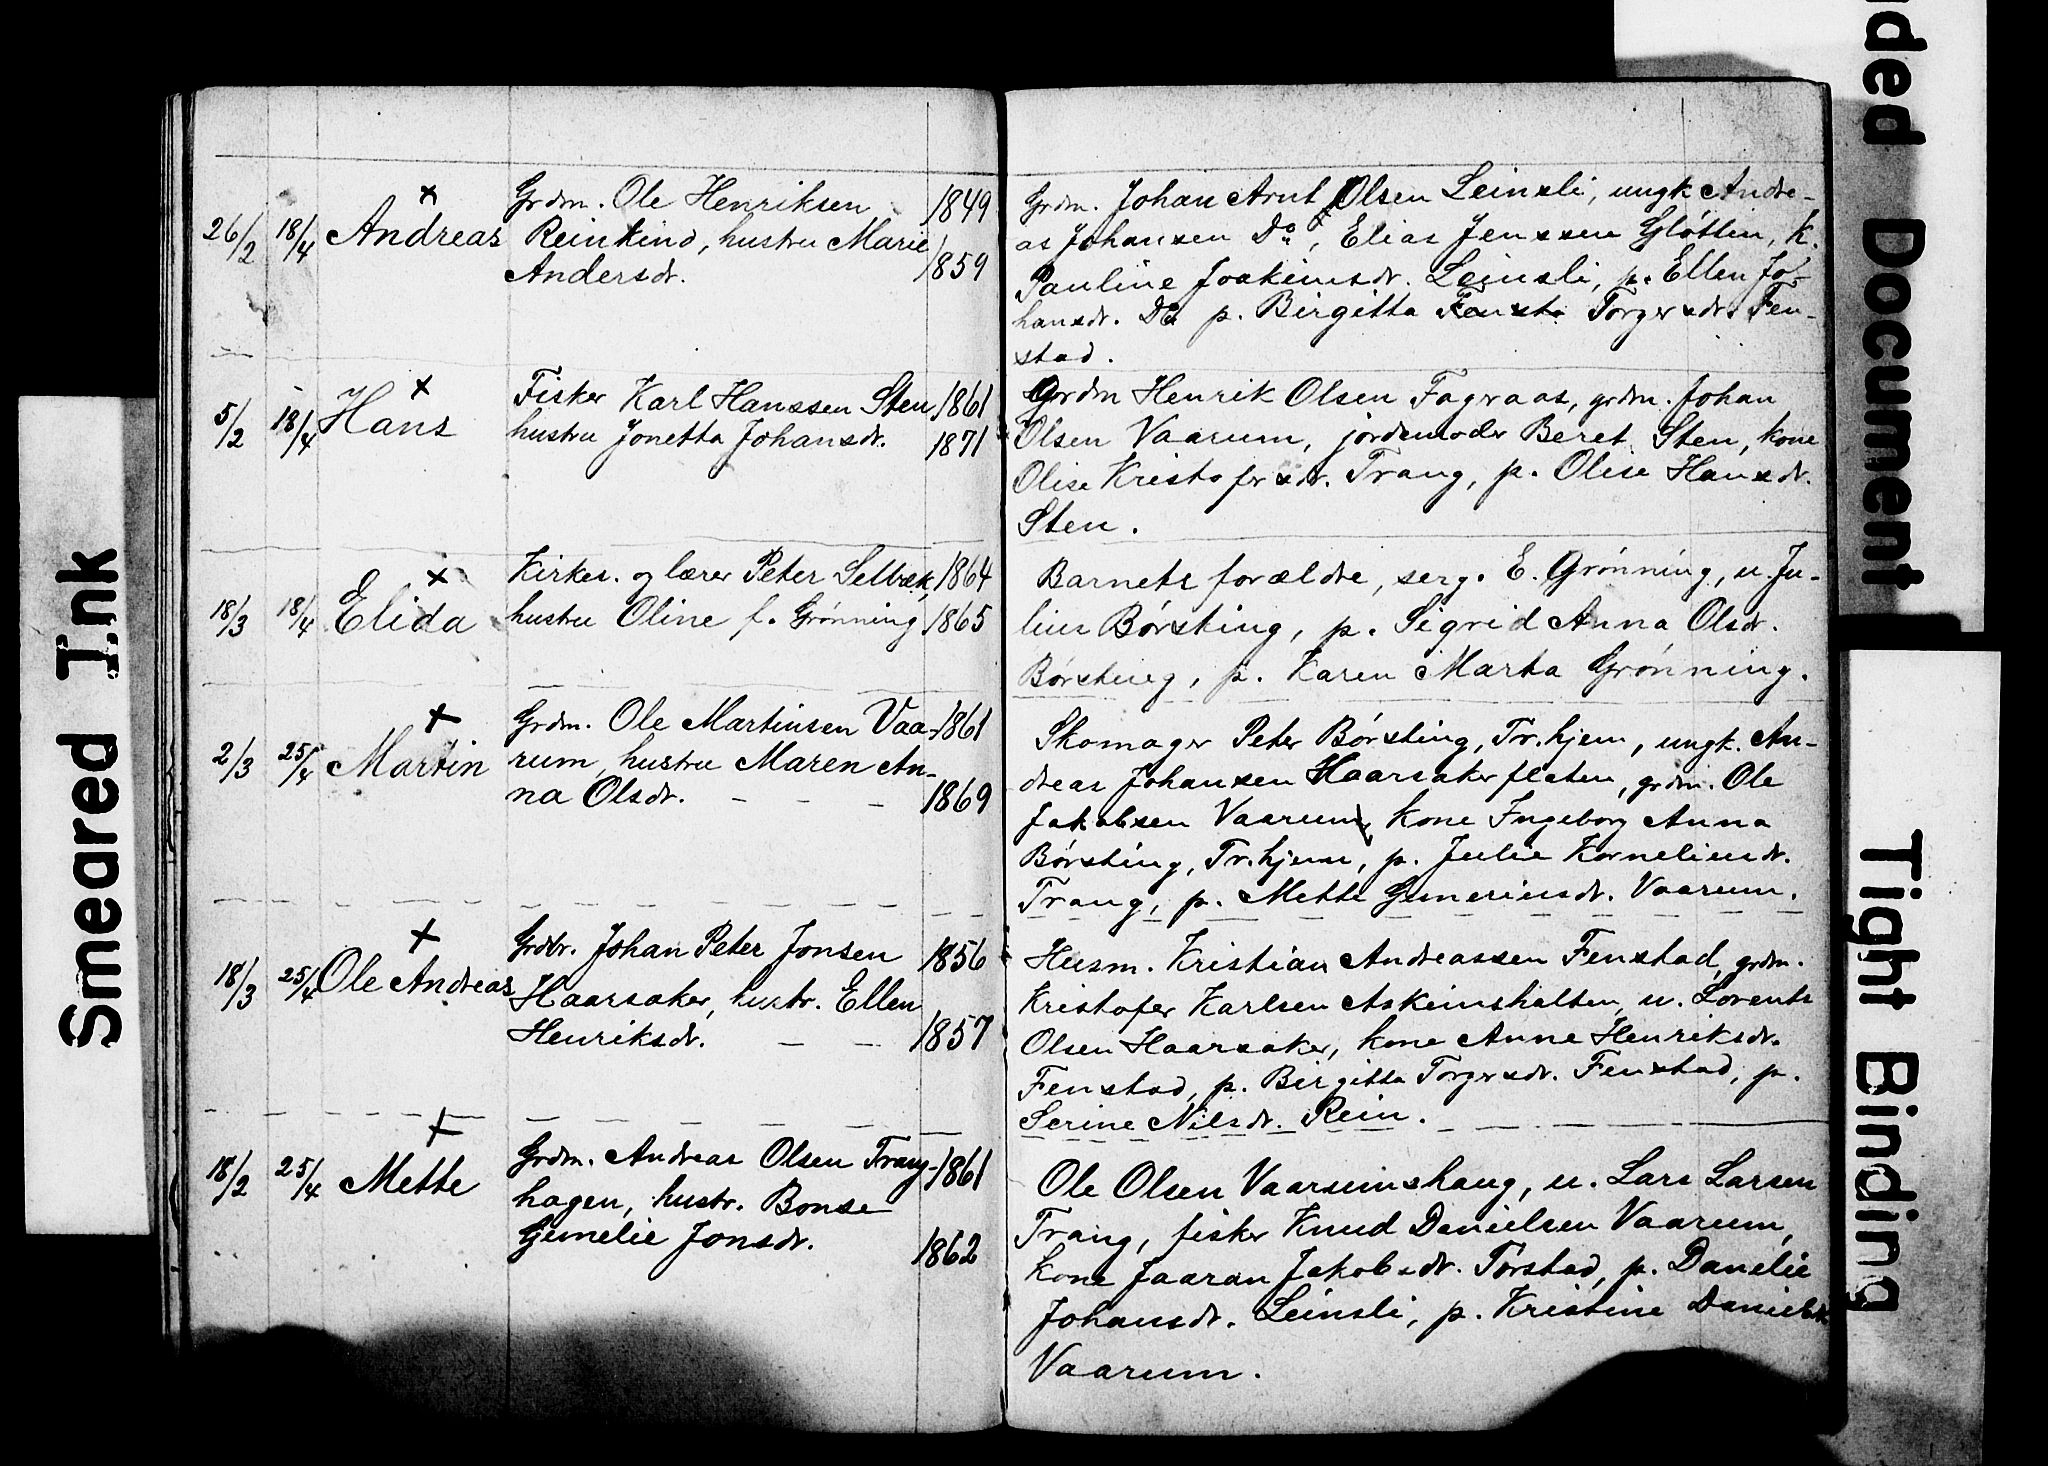 Grdm. Ole Henriksen 1849
26/2 18/4 Andreas Reinkind, hustru Marie
Andersdr. 1859
Grdm. Johan Arnt Olsen Leinsli, ungk Andre-
as Johansen Do, Elias Jenssen Gløtlin, k.
Pauline Joakimsdr. Leinsli, p. Ellen Jo-
hansdr. Do p. Birgitta Torgersdr. Fen-
stad.
Fisker Karl Hanssen Sten, 1861
5/2 18/4 Hans hustru Jonetta Johansdr. 1871
Gordm Henrik Olsen Fagraas, grdm. Johan
Olsen Vaarum, jordemoder Beret Sten, kone
Olise Kristofersdr. Trang, p. Olise Hansdr.
Sten.
Kirkes. og lærer Peter Selbæk, 1864
18/3 18/4 Elida hustru Oline f. Grønning 1865
Barnets forældre, serg. E. Grønning, u. Ju-
lius Børsting, p. Sigrid Anna Olsdr.
Børsting, p. Karen Marta Grønning.
Grdm. Ole Martinsen Vaa- 1861
2/3 25/4 Martin rum, hustru Maren An-
na Olsdr. - - - 1869
Skomager Peter Børsting, Tr.hjem, ungk. An-
dreas Johansen Haarsakerflaten, grdm. Ole
Jakobsen Vaarum, kone Ingeborg Anna
Børsting, Tr.hjem, p. Julie Korneliusdr.
Trang, p. Mette Guneriusdr. Vaarum.
Grdbr. Johan Peter Jonsen 1856
18/3 25/4 Ole Andreas Haarsaker, hustr. Ellen
Henriksdr. - - 1857
Husm. Kristian Andreassen Fenstad, grdm.
Kristofer Karlsen Askeimshalten, u. Lorents
Olsen Haarsaker, kone Anne Henriksdr.
Fenstad, p. Birgitta Torgersdr. Fenstad, p.
Serine Nilsdr. Rein.
Grdm. Andreas Olsen Trang- 1861
18/2 25/4 Mette hagen, hustr. Bonse
Gunelie Jonsdr. 1862
Ole Olsen Vaarumshaug, u. Lars Larsen
Trang, fisker Knud Danielsen Vaarum,
kone Jaaran Jakobsdr. Tørstad, p. Danelie
Johansdr. Leinsli, p. Kristine Danielsdr.
Vaarum.
Smeared Ink
nded Document
Tight Binding